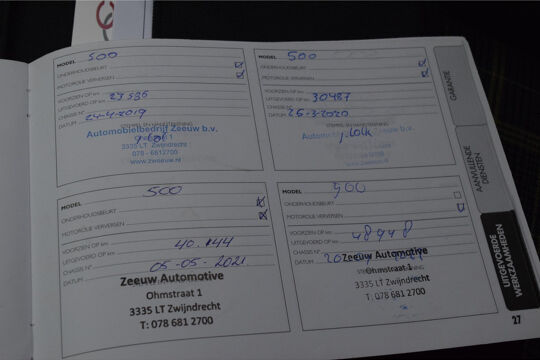 MODEL 500
ONDERHOUDSBEURT
MOTOROLIE VERVERSEN
VOORZIEN OP km
UITGEVOERD OP km
CHASSIS N°
DATUM 24-4-2019
Automobielbedrijf Zeeuw b.v.
3335 LT Zwijndrecht
078 - 6812700
www.zeeuw.nl
MODEL 500
ONDERHOUDSBEURT
MOTOROLIE VERVERSEN
VOORZIEN OP km
UITGEVOERD OP km 30487
CHASSIS N°
DATUM 25-3-2020
Zeeuw b.v.
3335 LT Zwijndrecht
www.zeeuw.nl
MODEL 500
ONDERHOUDSBEURT
MOTOROLIE VERVERSEN
VOORZIEN OP km
UITGEVOERD OP km 40.144
CHASSIS N°
DATUM 05-05-2021
Zeeuw Automotive
Ohmstraat 1
3335 LT Zwijndrecht
T: 078 681 2700
MODEL 500
ONDERHOUDSBEURT
MOTOROLIE VERVERSEN
VOORZIEN OP km
UITGEVOERD OP km 48948
CHASSIS N°
DATUM
Zeeuw Automotive
Ohmstraat 1
3335 LT Zwijndrecht
T: 078 681 2700
GARANTIE
AANVULLENDE
DIENSTEN
UITGEVOERDE
WERKZAAMHEDEN
27